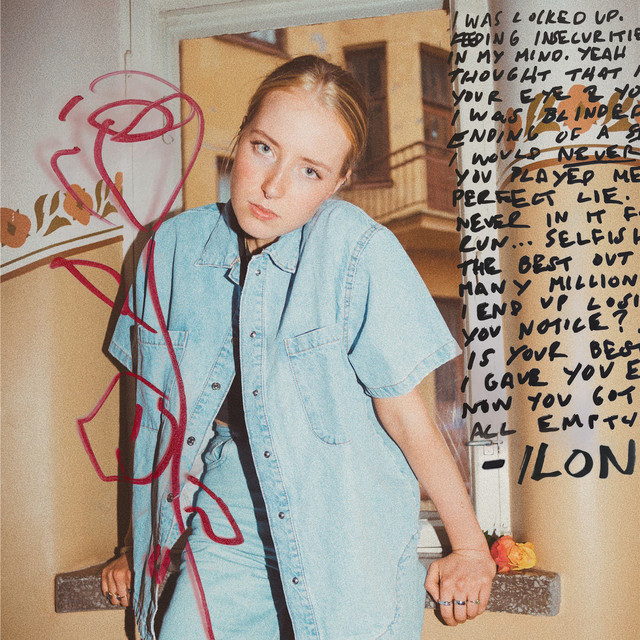 I WAS LOCKED UP.
INSECURITIE
IN MY MIND. YEAH
THOUGHT THAT
YOUR EYE & YO
I WAS BLINDED
ENDING OF A S
I WOULD NEVER
YOU PLAYED ME
PERFECT LIE.
NEVER IN IT F
RUN... SELFISH
THE BEST OUT
MANY MILLION
END UP LOSI
YOU NOTICE?
IS YOUR BEST
I GAVE YOU E
NOW YOU GOT
ALL EMPTY
- ILON